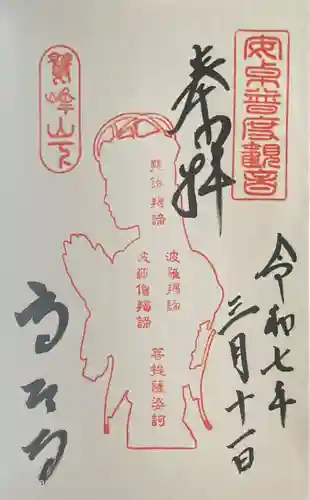 安卓普度觀音
奉拝
令和七年
三月十一日
鷲峰山下
羯諦羯諦
波羅羯諦
波羅僧羯諦
菩提薩婆訶
高台寺